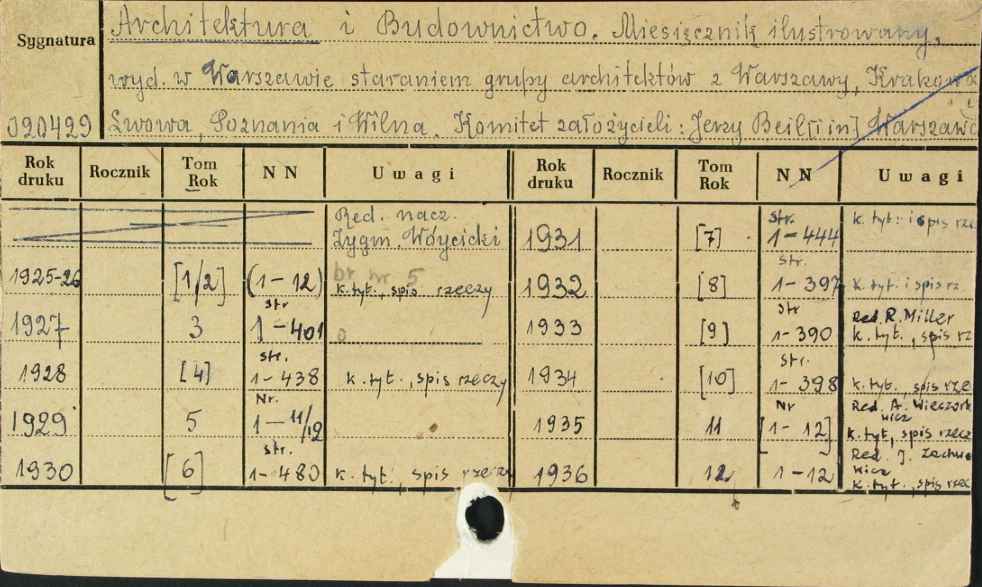 Sygnatura
020429
Architektura i Budownictwo. Miesięcznik ilustrowany,
wyd. w Warszawie staraniem grupy architektów z Warszawy, Krakowa
Lwowa, Poznania i Wilna. Komitet założycieli: Jerzy Beil [i in] Warszawa
Rok druku Rocznik Tom Rok N N Uwagi Rok druku Rocznik Tom Rok N N Uwagi
Red. nacz.
Zygm. Wóycicki
1925-26 [1/2] (1-12) br nr 5
k. tyt., spis rzeczy
1927 3 str 1-401
1928 [4] str. 1-438 k. tyt., spis rzeczy
1929 5 Nr. 1-11/12
1930 [6] str. 1-480 k. tyt., spis rzeczy
1931 [7] str. 1-444 k. tyt. i spis rze
1932 [8] str. 1-397 k. tyt. i spis rz
1933 [9] str 1-390 Red. R. Miller
k. tyt., spis rz
1934 [10] str. 1-398 k. tyt., spis rze
1935 11 Nr [1-12] Red. A. Wieczork
wicz
k. tyt, spis rzecz
1936 12 1-12 Red. J. Zachwa
wicz
k. tyt., spis rzec